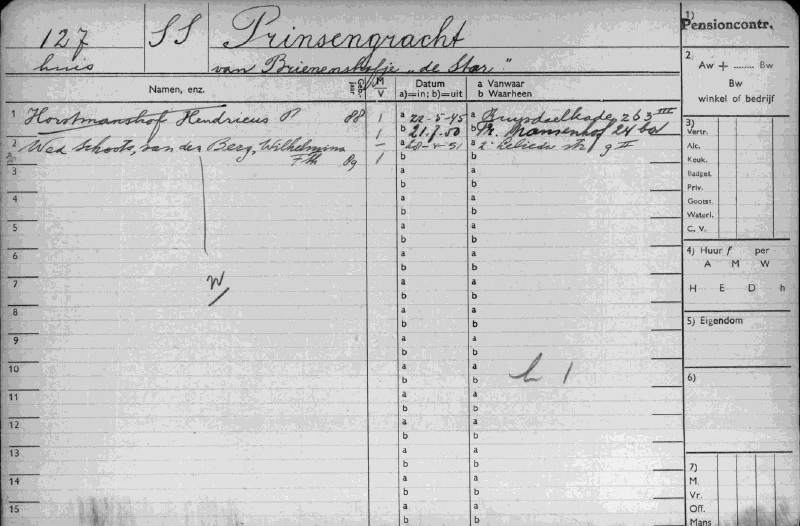 127 SS Prinsengracht
huis van Brienenshofje „de Star"
Namen, enz. Geb. jaar M V Datum a)=in; b)=uit a Vanwaar b Waarheen
1 Horstmanshof Hendricus P 88 1 a 22-5-45 a Ruysdaelkade 263 III
1 b 21.7.50 b
2 Wed Schoots, van der Berg, Wilhelmina a 28-4-51 a 2e
F th 89 1 b b
3 a a
b b
4 a a
b b
5 a a
b b
6 a a
b b
7 a a
W b b
8 a a
b b
9 a a
b b
10 a a
b b
11 a a
b b
12 a a
b b
13 a a
b b
14 a a
b b
15 a a
b b
1)
Pensioncontr.
2)
Aw + ........ Bw
Bw
winkel of bedrijf
3)
Vertr.
Alc.
Keuk.
Badgel.
Priv.
Gootst.
Waterl.
C. V.
4) Huur f per
A M W
H E D h
5) Eigendom
6)
7)
M.
Vr.
Off.
Mans